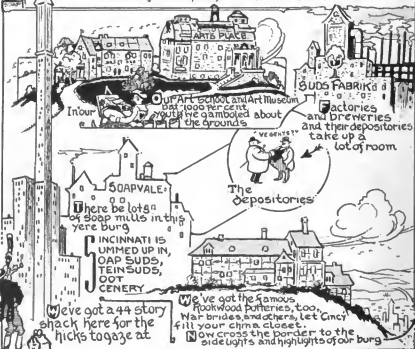 ARTS PLACE
Our Art School and Art Museum
bat 1000 per cent.
In our youth we gamboled about
the grounds
SUDS FABRIK'S
Factories
and breweries
and their depositories
take up a
lot of room
The
depositories
SOAPVALE
There be lots
of soap mills in this
yere burg
CINCINNATI IS
SUMMED UP IN,
SOAP SUDS,
STEIN SUDS,
SOOT
SCENERY
We've got a 44 story
shack here for the
hicks to gaze at
We've got the famous
Rookwood potteries, too,
War brides and others, let Cincy
fill your china closet.
Now cross the border to the
sidelights and highlights of our burg